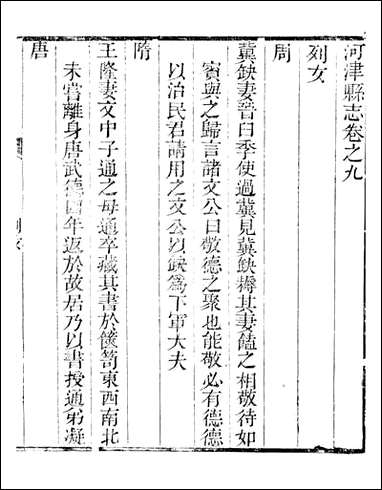 河津縣志卷之九
列女
周
冀缺妻晉臼季使過冀見冀缺耨其妻饁之相敬待如
賓與之歸言諸文公曰敬德之聚也能敬必有德德
以治民君請用之文公以缺為下軍大夫
隋
王隆妻文中子通之母通卒藏其書於篋笥東西南北
未嘗離身唐武德四年返於故居乃以書授通弟凝
唐